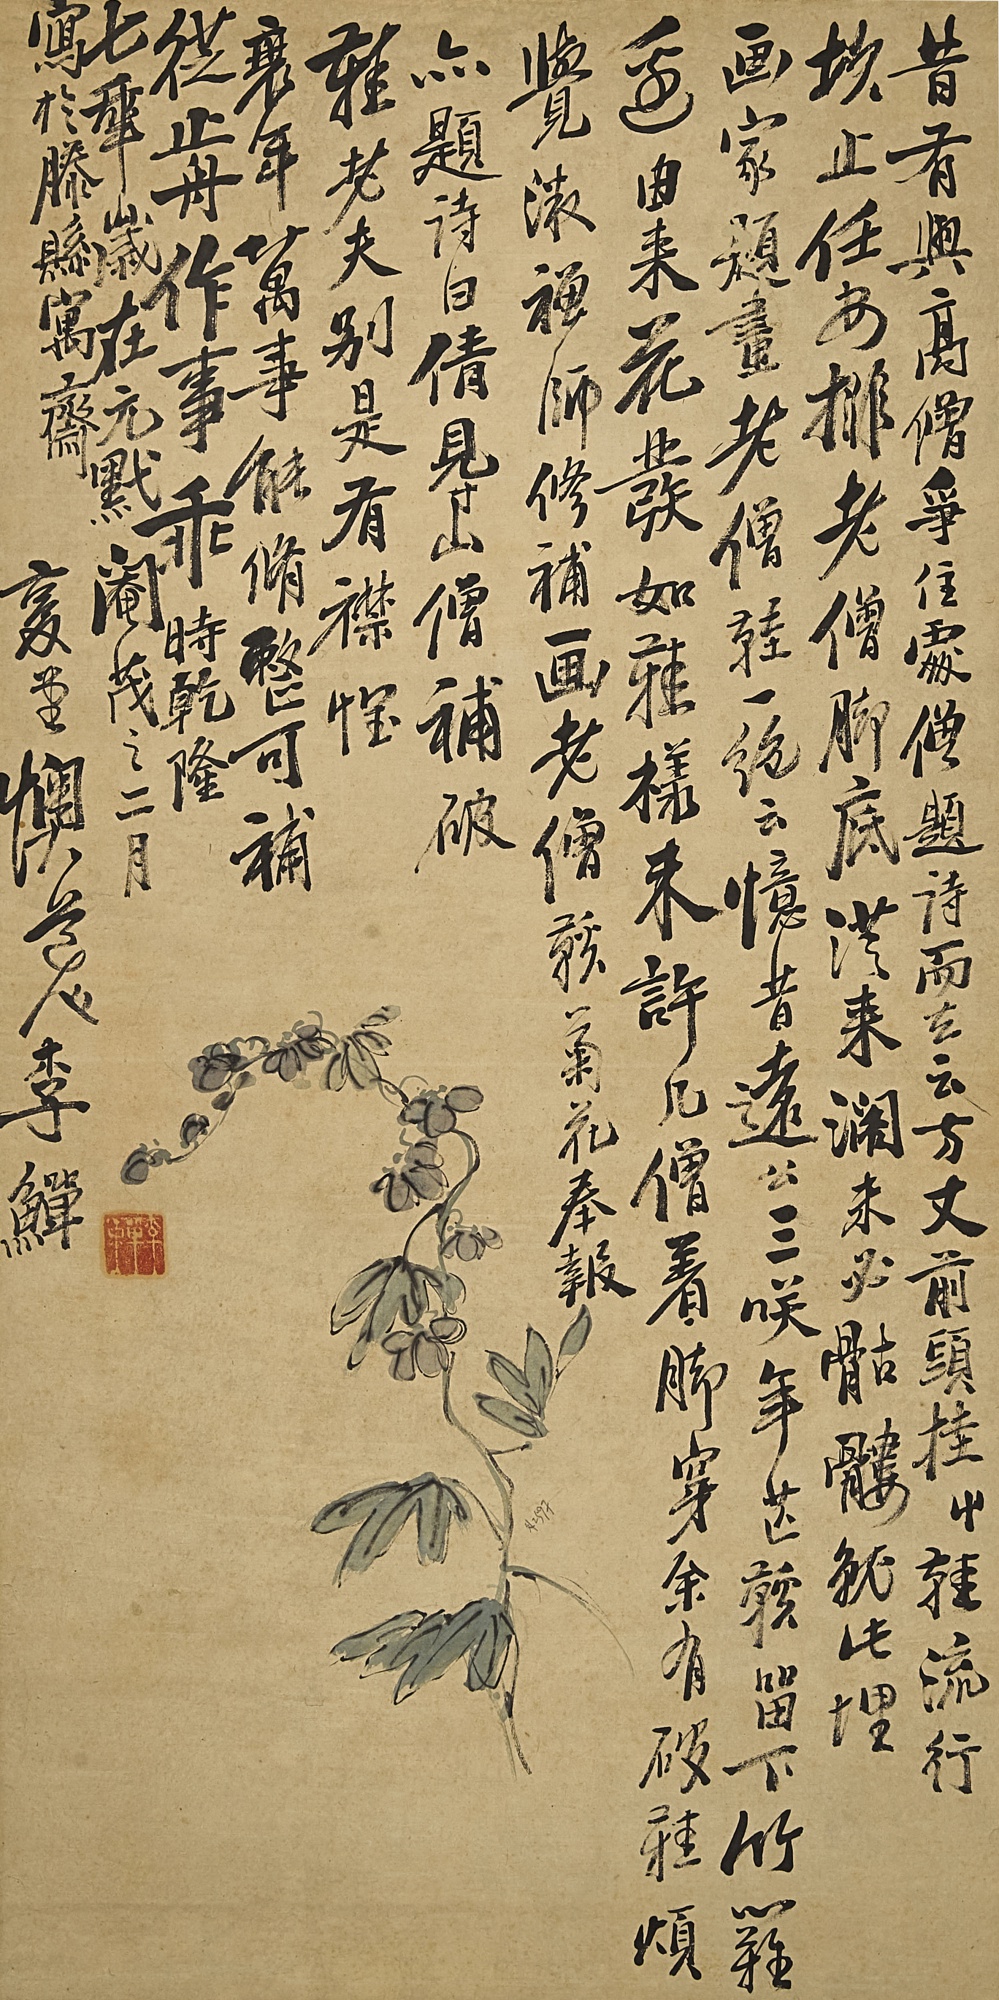 昔有與高僧爭住處僧題詩而去云方丈前頭挂艸鞋流行
坎止任安排老僧脚底從来濶未必骷髏就此埋
画家題畫老僧鞋一絶云憶昔遠公三咲年芒鞵留下竹籬
邊由来花發如鞋樣未許凡僧着脚穿余有破鞋煩
覺濲禅師修補画老僧鞵菊花奉報
亦題詩曰倩見山僧補破
鞋老夫别是有襟懷
衰年萬事能脩整可補
從前作事乖時乾隆
七年歲在元黓閹茂之二月
寫於滕縣寓齋
復堂懊道人李鱓